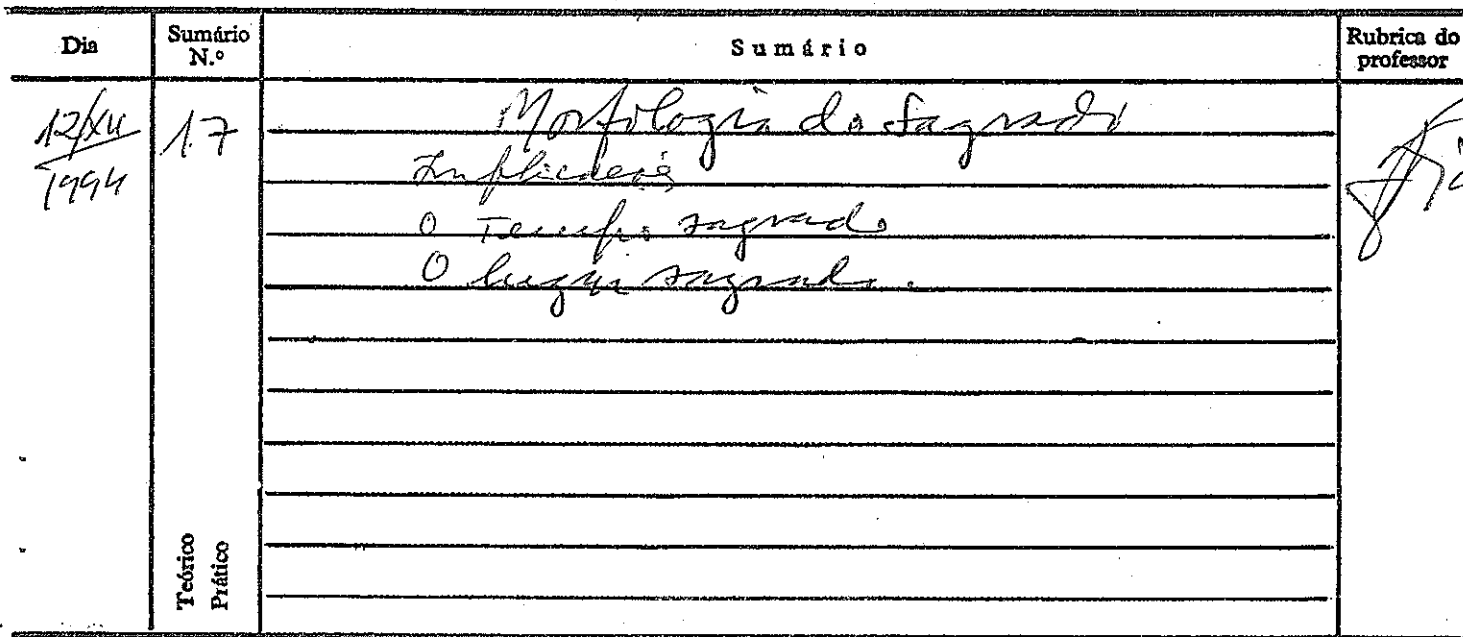 Dia Sumário N.º Sumário Rubrica do professor
12/XII/1994 17 Morfologia do Sagrado
Implicações
O Tempo sagrado
O lugar sagrado.
Teórico
Prático